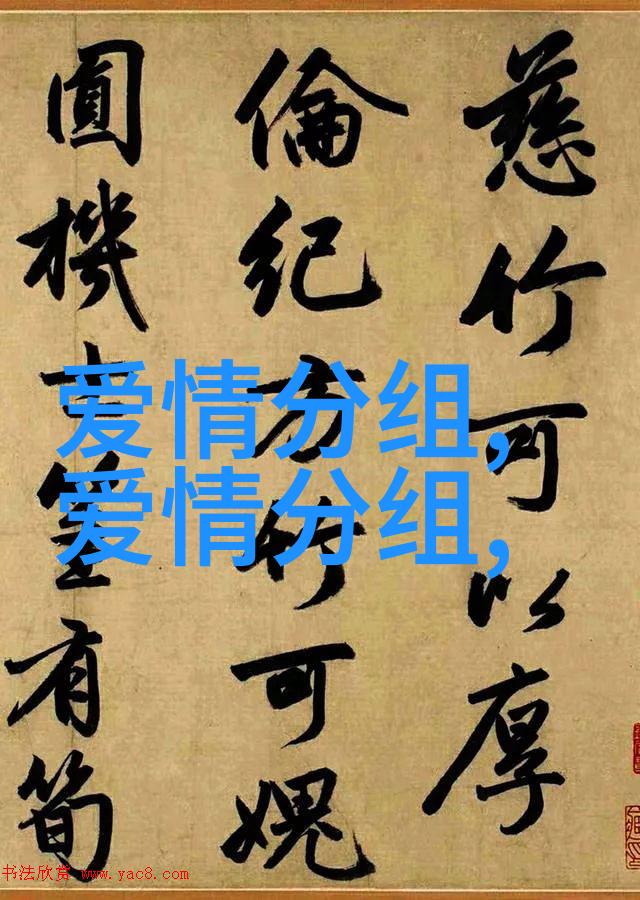 慈竹可以厚
倫紀方竹可愧
圓機士筀有筍
爱情分组,
爱情分组,
书法欣赏 www.yac8.com